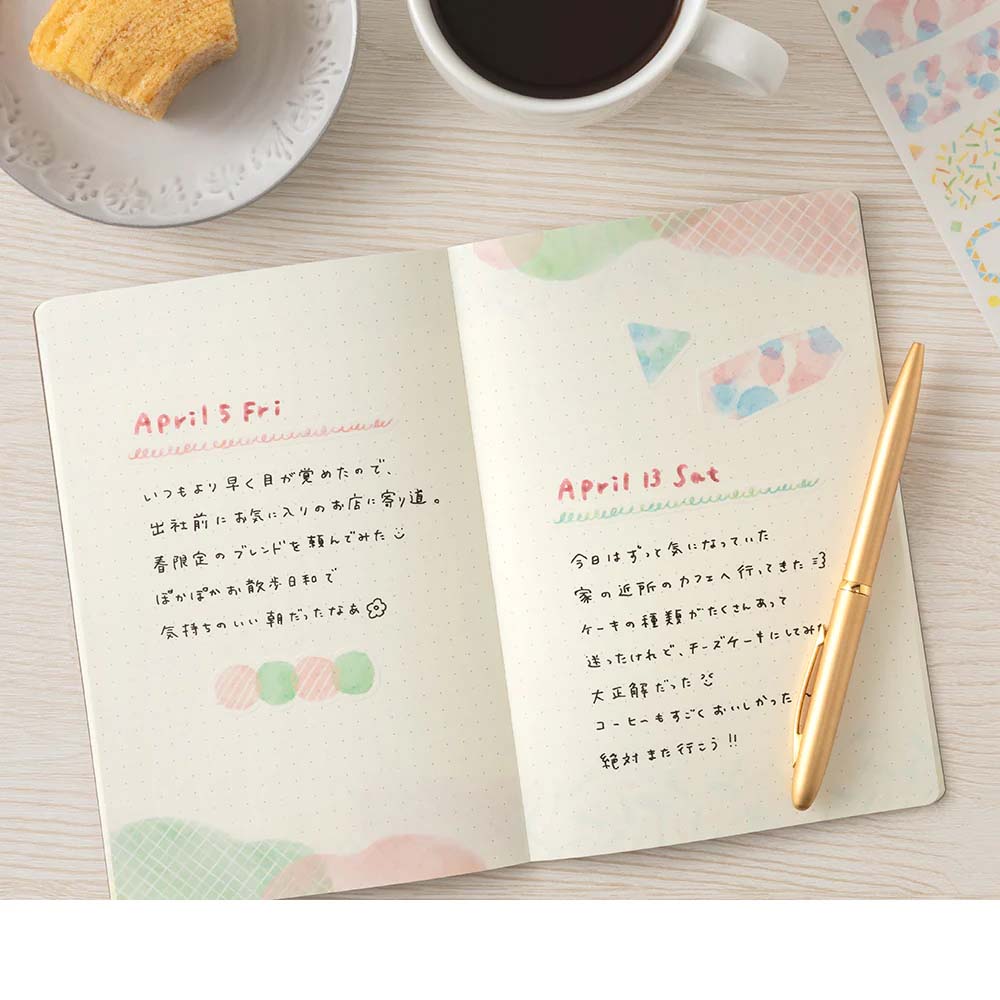 April 5 Fri
いつもより早く目が覚めたので、
出社前にお気に入りのお店に寄り道。
春限定のブレンドを頼んでみた
ぽかぽかお散歩日和で
気持ちのいい朝だったなあ
April 13 Sat
今日はずっと気になっていた
家の近所のカフェへ行ってきた
ケーキの種類がたくさんあって
迷ったけれど、チーズケーキにしてみた
大正解だった
コーヒーもすごくおいしかった
絶対また行こう!!